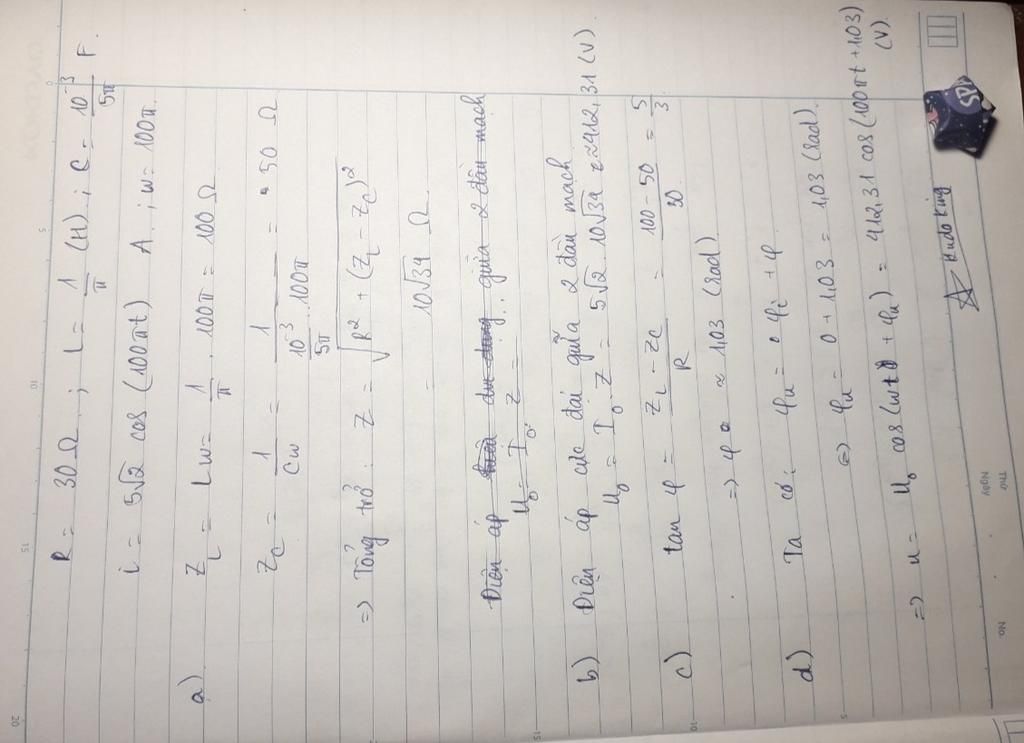 R = 30 Ω ; L = 1/π (H) ; C = 10⁻³/5π F.
i = 5√2 cos (100πt) A ; w = 100π
a) Z_L = Lw = 1/π . 100π = 100 Ω
Z_C = 1/Cw = 1/(10⁻³/5π . 100π) = 50 Ω
=> Tổng trở : Z = √(R² + (Z_L - Z_C)²)
= 10√34 Ω
Điện áp giữa 2 đầu mạch
U₀ = I₀ . Z =
b) Điện áp cực đại giữa 2 đầu mạch
U₀ = I₀ . Z = 5√2 . 10√34 ≈ 412,31 (V).
c) tan φ = (Z_L - Z_C)/R = (100 - 50)/30 = 5/3
=> φ ≈ 1,03 (rad)
d) Ta có : φᵤ = φᵢ + φ
=> φᵤ = 0 + 1,03 = 1,03 (rad).
=> u = U₀ cos (wt + φᵤ) = 412,31 cos (100πt + 1,03) (V)
Kudo King
SP
Thứ
Ngày
No.
5
10
15
20
5
10
15
0